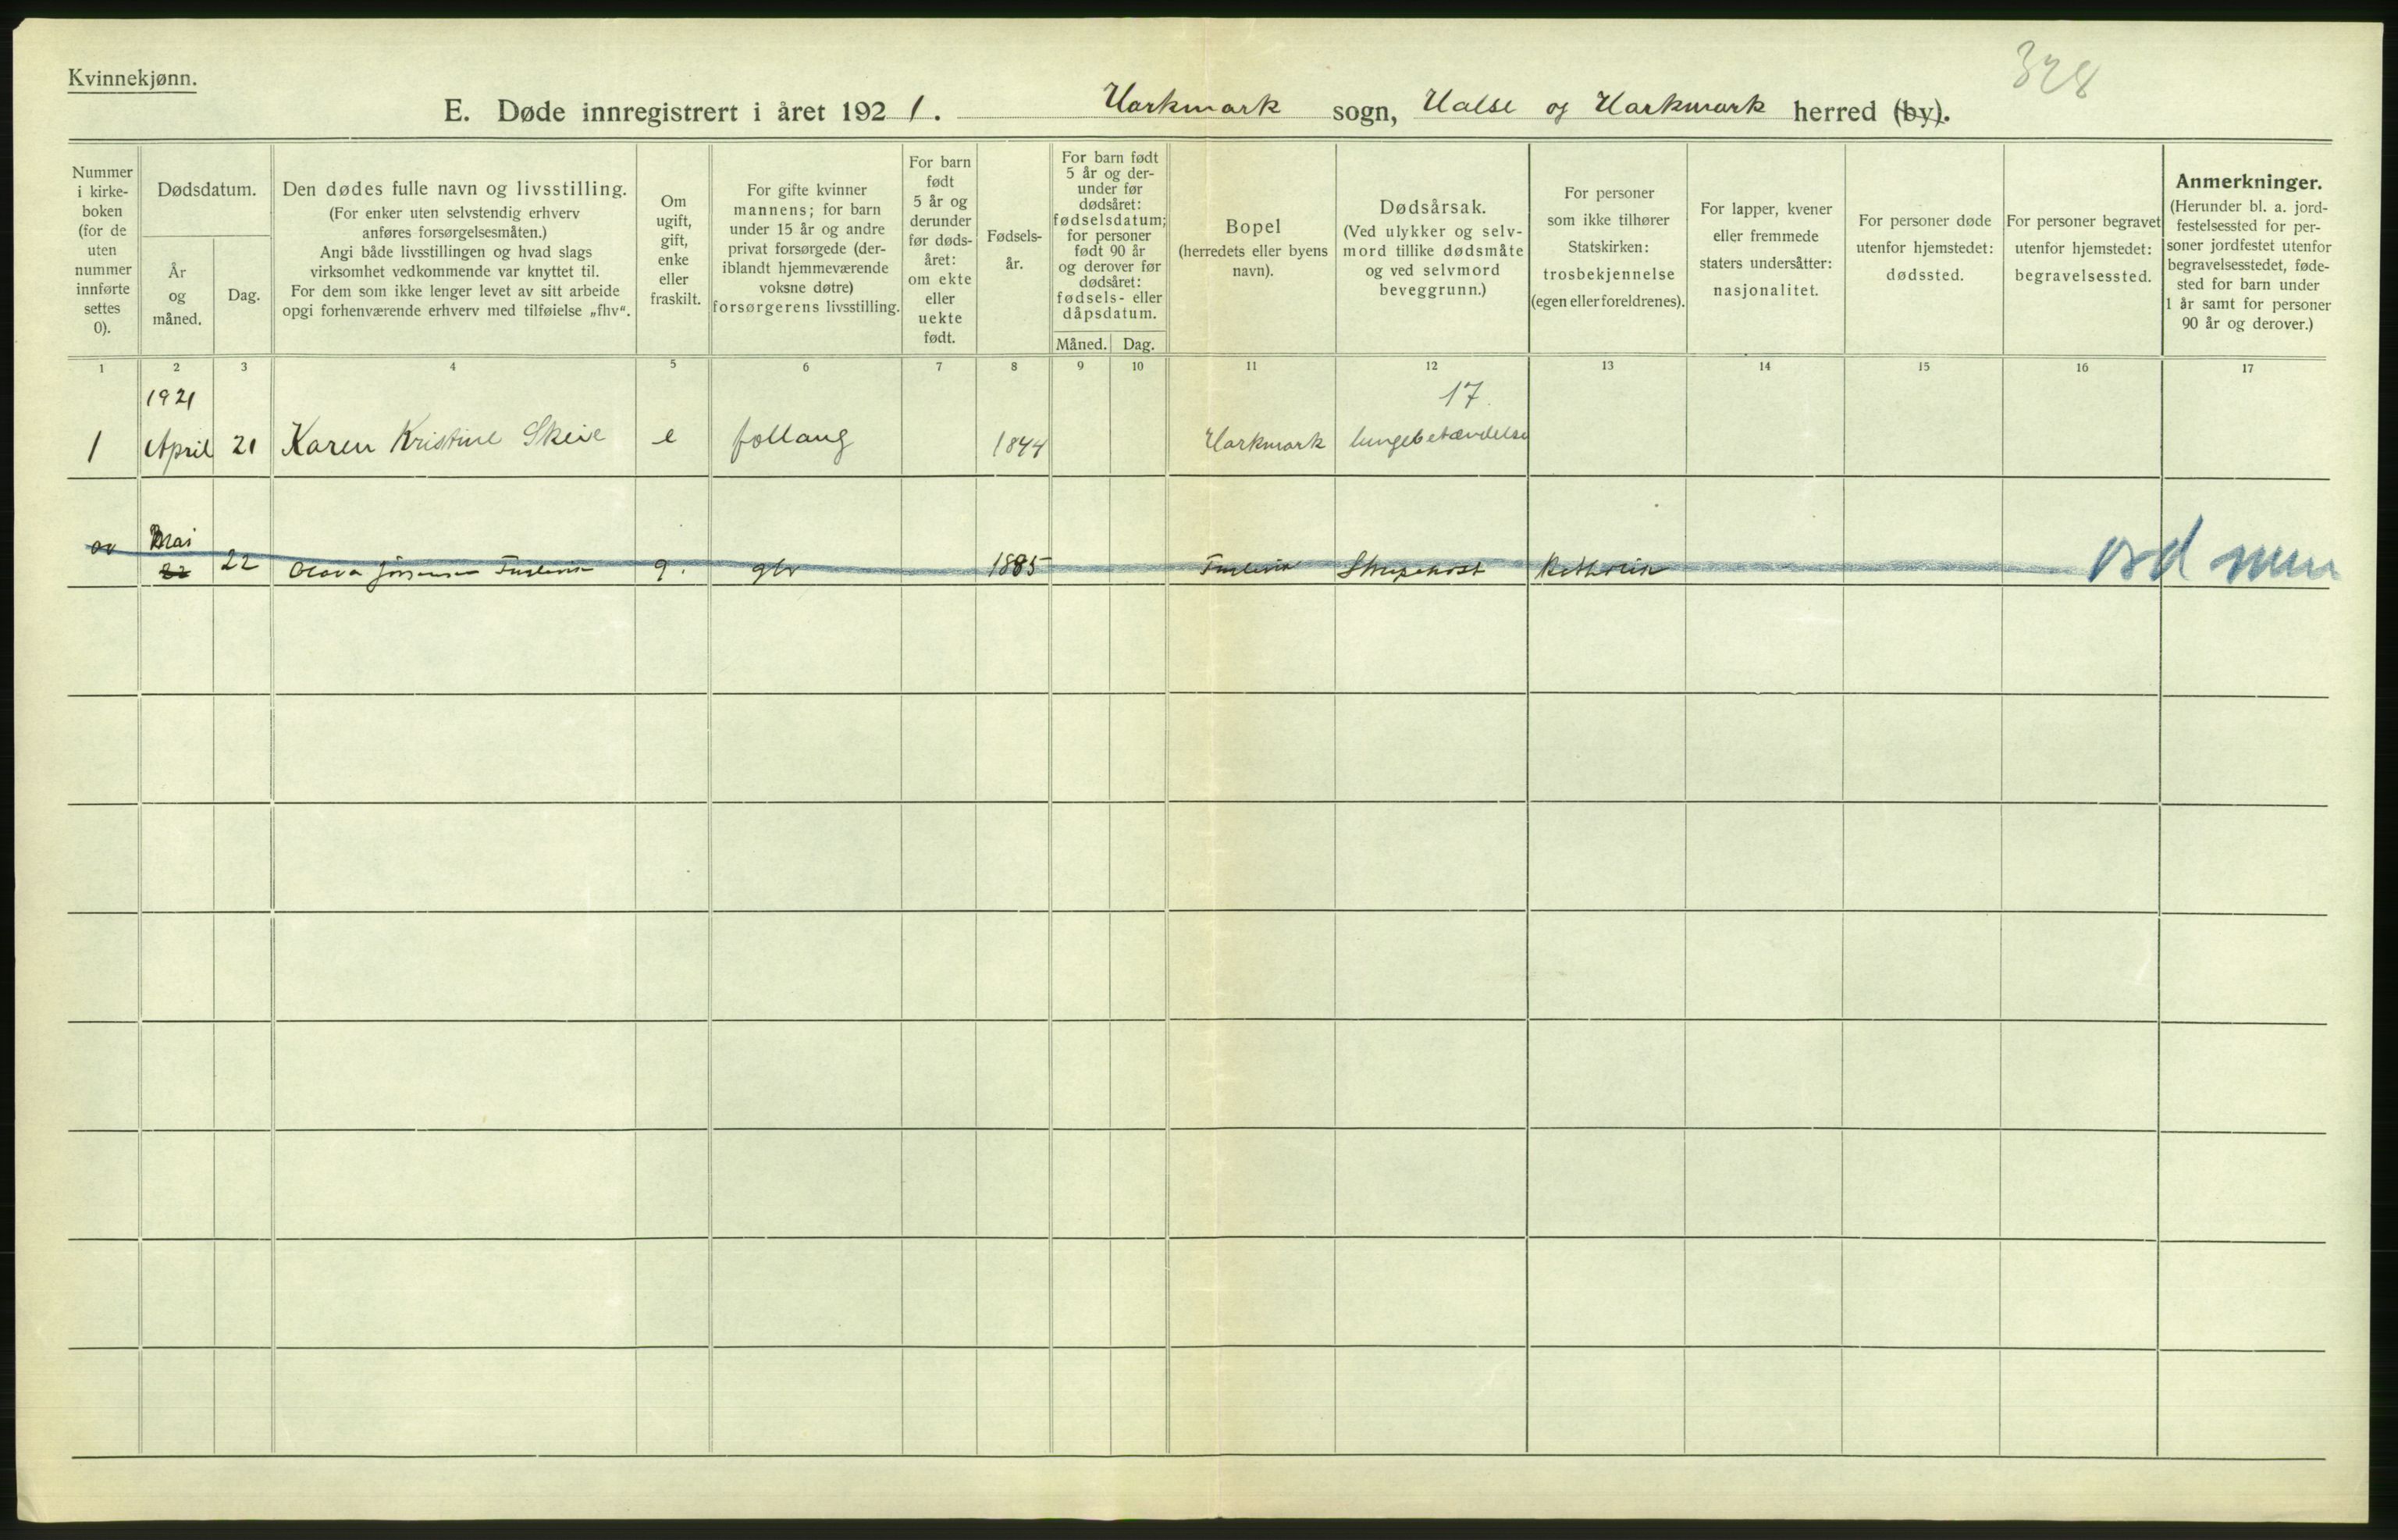 Kvinnekjønn.
328
E. Døde innregistrert i året 1921. Harkmark sogn, Halse og Harkmark herred (by).
Nummer
i kirke-
boken
(for de
uten
nummer
innførte
settes
0).
Dødsdatum.
År
og
måned.
Dag.
Den dødes fulle navn og livsstilling.
(For enker uten selvstendig erhverv
anføres forsørgelsesmåten.)
Angi både livsstillingen og hvad slags
virksomhet vedkommende var knyttet til.
For dem som ikke lenger levet av sitt arbeide
opgi forhenværende erhverv med tilføielse „fhv“.
Om
ugift,
gift,
enke
eller
fraskilt.
For gifte kvinner
mannens; for barn
under 15 år og andre
privat forsørgede (der-
iblandt hjemmeværende
voksne døtre)
forsørgerens livsstilling.
For barn
født
5 år og
derunder
før døds-
året:
om ekte
eller
uekte
født.
Fødsels-
år.
For barn født
5 år og der-
under før
dødsåret:
fødselsdatum;
for personer
født 90 år
og derover før
dødsåret:
fødsels- eller
dåpsdatum.
Måned. Dag.
Bopel
(herredets eller byens
navn).
Dødsårsak.
(Ved ulykker og selv-
mord tillike dødsmåte
og ved selvmord
beveggrunn.)
For personer
som ikke tilhører
Statskirken:
trosbekjennelse
(egen eller foreldrenes).
For lapper, kvener
eller fremmede
staters undersåtter:
nasjonalitet.
For personer døde
utenfor hjemstedet:
dødssted.
For personer begravet
utenfor hjemstedet:
begravelsessted.
Anmerkninger.
(Herunder bl. a. jord-
festelsessted for per-
soner jordfestet utenfor
begravelsesstedet, føde-
sted for barn under
1 år samt for personer
90 år og derover.)
1 2 3 4 5 6 7 8 9 10 11 12 13 14 15 16 17
1921
17.
1 April 21 Karen Kristine Skeie e follaug 1844 Harkmark lungebetændelse
Mai
22 22 g. 1885